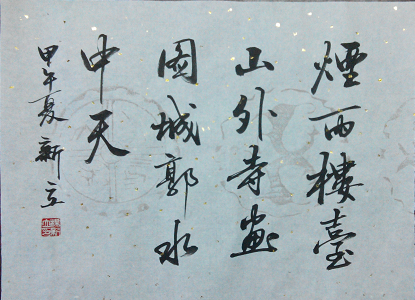 煙雨樓臺
山外寺畫
圖城郭水
中天
甲午夏新立